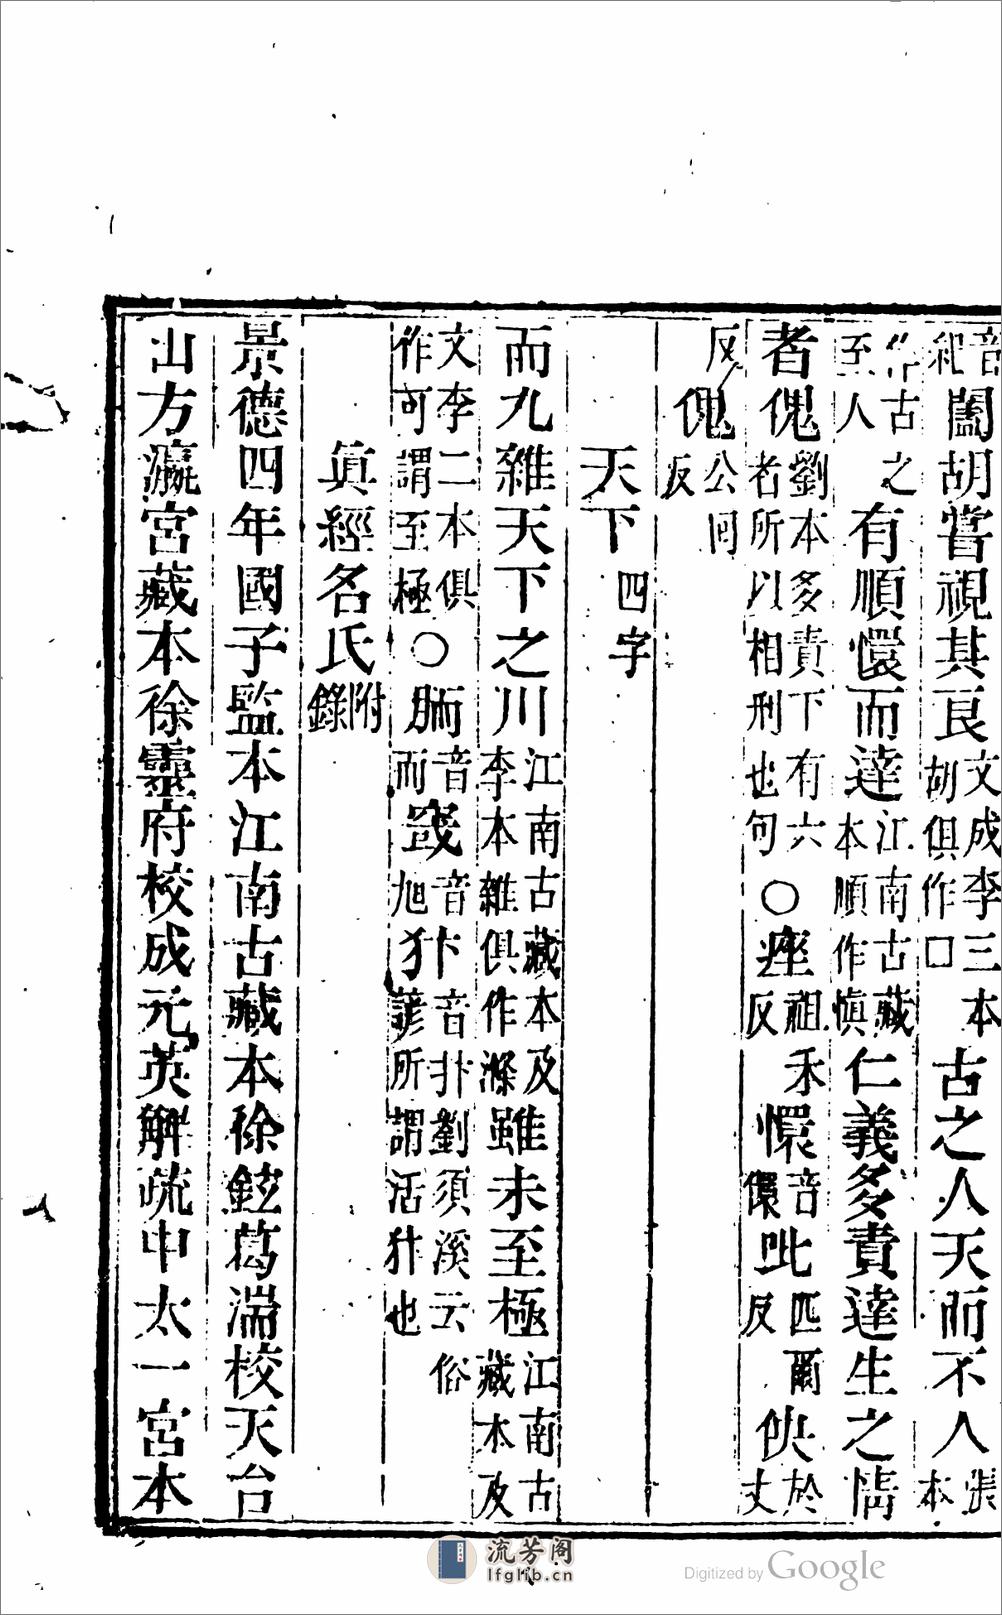 音和闔胡嘗視其良文成李三本胡俱作口古之人天而不人張本
作古之至人有順懁而達江南古藏本順作慎仁義多責達生之情
者傀劉本多責下有六者所以相刑也句○痤祖禾反懁音儇吡匹爾反佒於丈
反傀公回反
天下四字
而九雜天下之川江南古藏本及李本雜俱作滌雖未至極江南古藏本及
文李二本俱作可謂至極○胹音而音旭犿音抃劉須溪云俗諺所謂活犿也
眞經名氏附錄
景德四年國子監本江南古藏本徐鉉葛湍校天台
山方瀛宮藏本徐靈府校成元英解疏中太一宮本
流芳阁
lfglib.cn
Digitized by Google